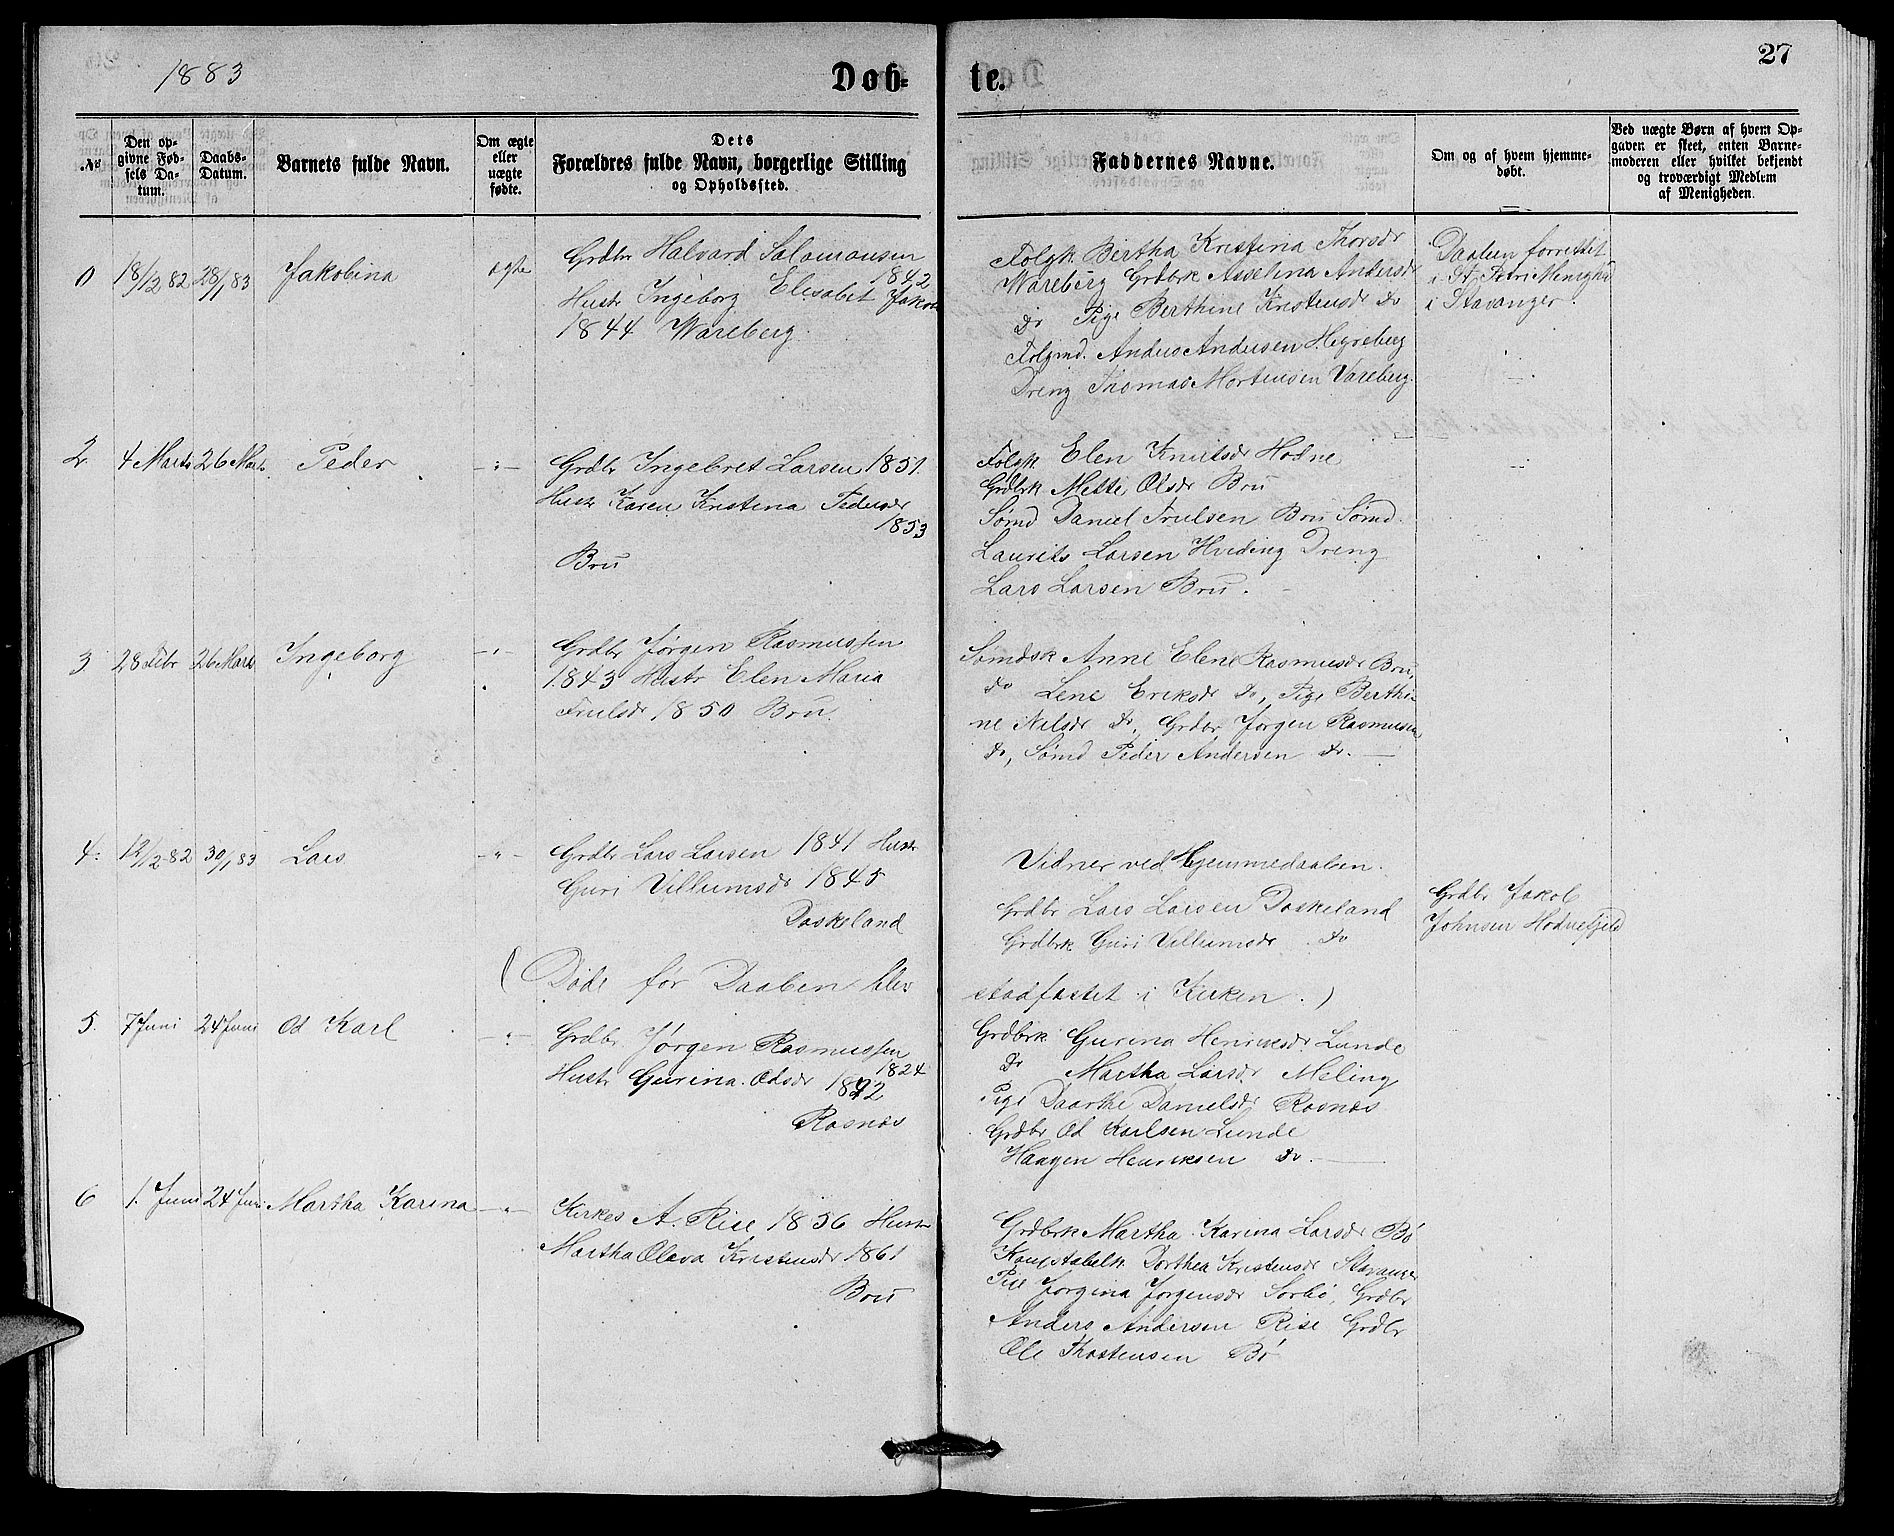 1883
Døb-
te.
27
No
Den op-
givne Fød-
sels Da-
tum.
Daabs-
Datum.
Barnets fulde Navn.
Om ægte
eller
uægte
fødte.
Dets
Forældres fulde Navn, borgerlige Stilling
og Opholdssted.
Faddernes Navne.
Om og af hvem hjemme-
døbt.
Ved uægte Børn af hvem Op-
gaven er skeet, enten Barne-
moderen eller hvilket bekjendt
og troværdigt Medlem
af Menigheden.
18/12 82 28/1 83 Jakobina ægte
Grdbr Halvard Salomonsen
1842
Hustr Ingeborg Elisabet Jakobs
1844 Wareberg.
Folgk Bertha Kristina Thorsdr
Wareberg Grdbrk Asselina Andersdr
do Pige Berthine Kristensdr do
Folgmd. Anders Andersen Heyreberg
Dreng Thomas Mortensen Vareberg.
Daaben forrettet
i St. Petri Menighed
i Stavanger
2. 4 Marts 26 Marts. Peder -"-
Grdbr Ingebret Larsen 1851.
Hustr Karen Kristina Pedersdr
1853
Bru
Folgk Elen Knutsdr Hodne
Grdbrk Mette Olsdr Bru
Sømd Daniel Trulsen Bru Sømd.
Laurits Larsen Hviding Dreng
Lars Larsen Bru.
3 28 Febr 26 Marts Ingeborg -"-
Grdbr Jørgen Rasmussen
1843 Hustr Elen Maria
Trulsdr 1850 Bru.
Sømdsk Anne Elene Rasmusdr Bru,
do Lene Eriksdr do, Pige Berthi-
ne Nilsdr do, Grdbr Jørgen Rasmussen
do, Sømd Peder Andersen do. —
4. 12/12 82 30/1 83 Lars -"-
Grdbr Lars Larsen 1841 Hustr
Guri Villumsdr 1845
Daskeland
Vidner ved Hjemmedaaben.
Grdbr Lars Larsen Daskeland
Grdbrk Guri Villumsdr do
Grdbr Jakob
Johnsen Hodnefjeld
( Døde før Daaben blev
stadfæstet i Kirken. )
5. 7 Juni 24 Juni Od Karl -"-
Grdbr Jørgen Rasmussen
1824
Hustr Gurina Odsdr 1842
Rasnæs
Grdbrk Gurina Henriksdr Lunde
do Martha Larsdr Meling
Pige Daarthe Danielsdr Rasnæs
Grdbr Od Karlsen Lunde
Haagen Henriksen do. —
6 1. Juni 24 Juni Martha Karina -"-
Kirkes A. Rise 1856 Hustr
Martha Olava Kristensdr 1861
Bru
Grdbrk Martha Karina Larsdr Bø
Konstabelk Dorthea Kristensdr Stavanger
Pige Jørgina Jørgensdr Sørbø, Grdbr
Anders Andersen Rise Grdbr
Ole Thostensen Bø